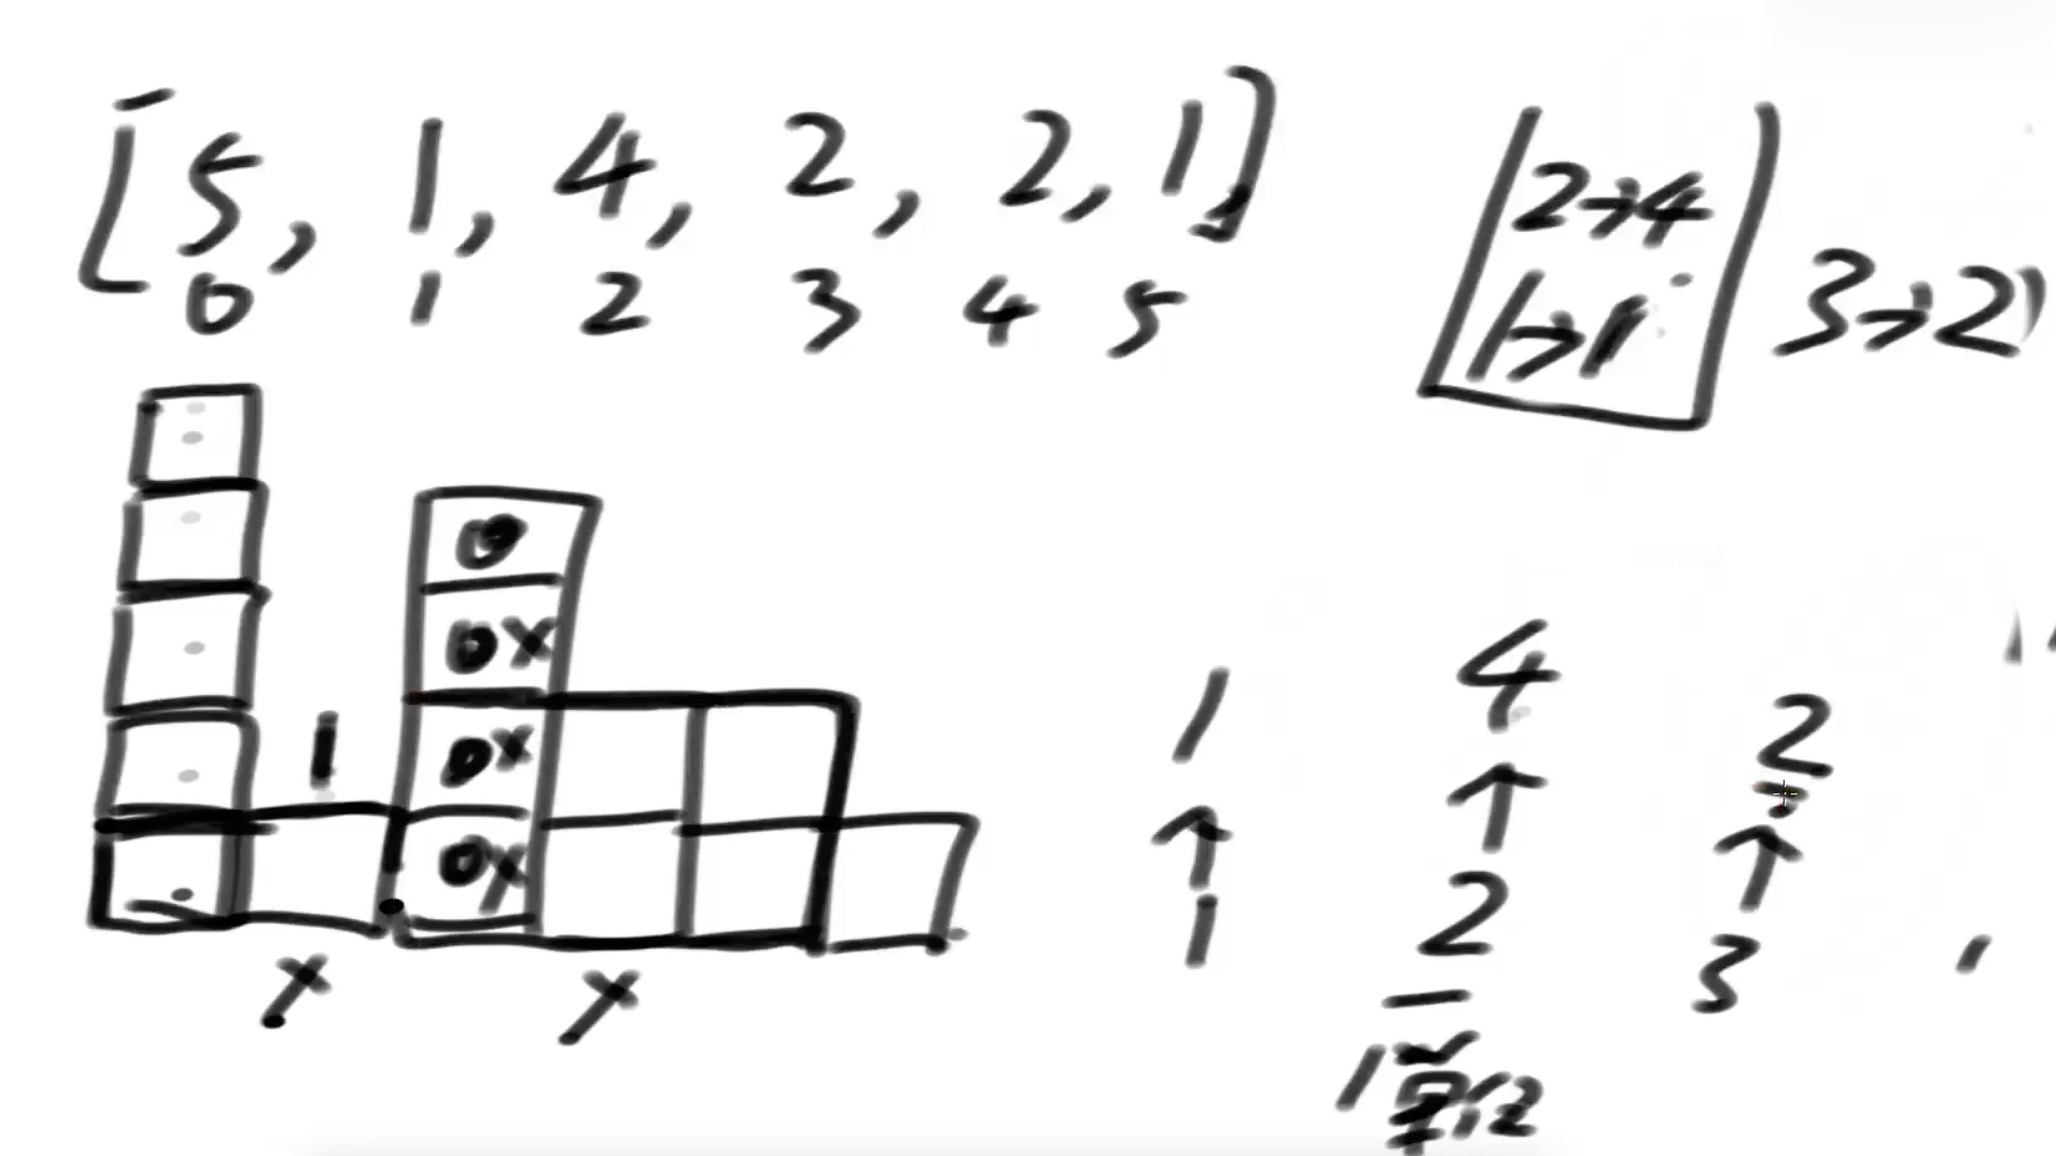 [5, 1, 4, 2, 2, 1]
0 1 2 3 4 5
2→4
1→1
3→2
1
0
0x
0x
0x
x x
1 4 2
↑ ↑ ↑
1 2 3
1单位